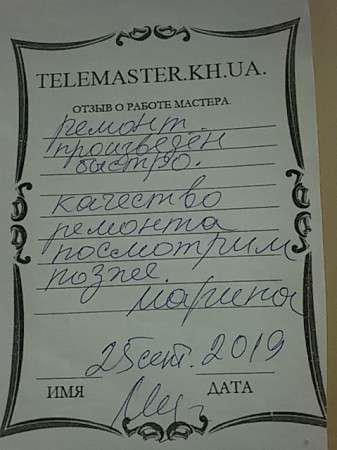 TELEMASTER.KH.UA.
ОТЗЫВ О РАБОТЕ МАСТЕРА.
ремонт
произведен
быстро.
качество
ремонта
посмотрим
позже.
Марина
25 сент. 2019
ИМЯ ДАТА